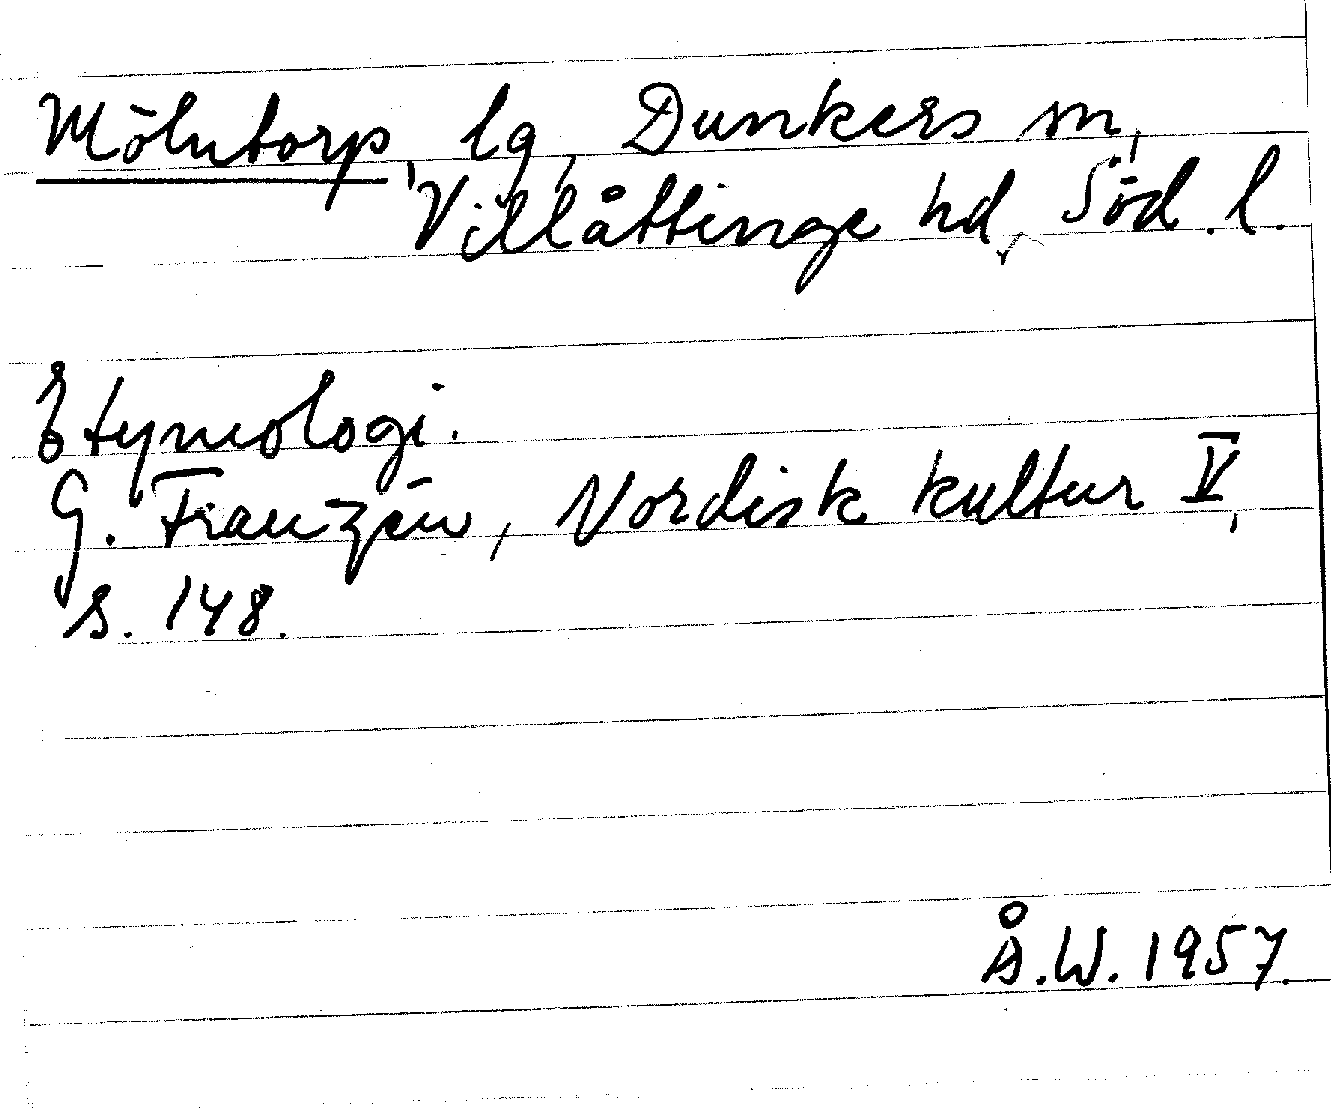 Mölntorp, lg, Dunkers sn,
Villåttinge hd, Söd. l.
Etymologi.
G. Franzén, Nordisk kultur V,
s. 148.
Å.W. 1957.